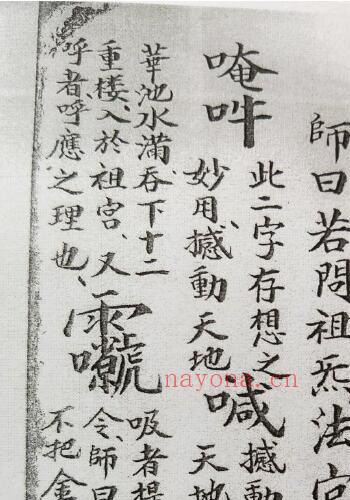 師曰若問祖炁法
唵吽
此二字存想之
妙用、撼動天地
喊
撼動
天地
華池水滿、吞下十二
重楼、入於祖宮、又
呼者呼應之理也、
吸者提
令、師曰
不把金
nayona.cn